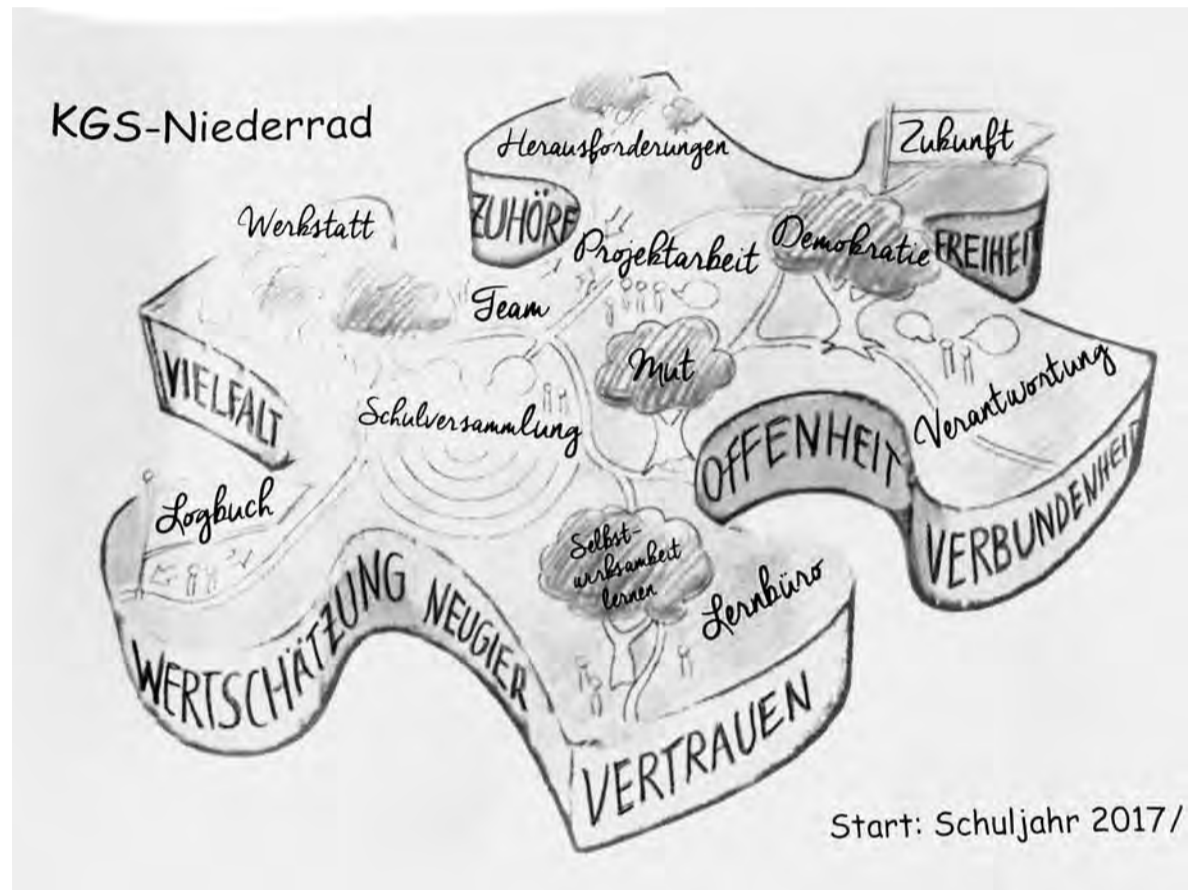 KGS-Niederrad
Herausforderungen
Zukunft
ZUHÖRE
Werkstatt
Projektarbeit
Demokratie
FREIHEIT
Team
Mut
VIELFALT
Schulversammlung
OFFENHEIT
Verantwortung
Logbuch
VERBUNDENHEIT
Selbst-
wirksamkeit
lernen
Lernbüro
WERTSCHÄTZUNG
NEUGIER
VERTRAUEN
Start: Schuljahr 2017/